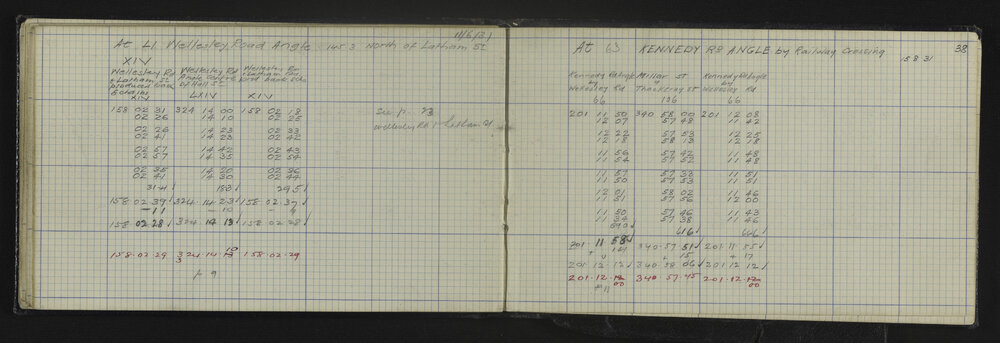 11/6/31
At LI Wellesley Road Angle 145.3 North of Latham St
XIV
Wellesley Rd Wellesley Rd Wellesley Rd
& Latham St Angle
produced back by Hall St
XIV LXIV XIV
158 02 31 324 14 00 158 02 18
02 26 14 10 02 25
02 26 14 23 02 33
02 41 14 23 02 42
02 57 14 42 02 43
02 57 14 35 02 54
02 35 14 20 02 36
02 41 14 30 02 44
314 183 295
158 02 39 324 14 23 158 02 37
-11 -10
158 02 28 324 14 13 158 02 28
158-02-29 324-14 158-02-29
p 9
see p. 23
Wellesley Rd Latham St
At 63 KENNEDY RD ANGLE by Railway Crossing
15 8 31
38
Kennedy Rd Angle Millar St Kennedy Rd Angle
by & by
Wellesley Rd Thackeray St Wellesley Rd
66 106 66
201 11 50 340 58 00 201 12 08
12 07 57 48 11 42
12 22 57 53 12 25
12 18 58 13 12 18
11 56 57 42 11 48
11 54 57 52 11 48
11 57 57 38 11 51
11 50 57 53 11 51
12 01 58 02 11 46
11 51 57 56 12 00
11 50 57 46 11 43
11 34 57 38 11 46
690 616 666
201 11 58 340-57 51 201-11 55
+ 14 + 15 + 17
201-12-12 340-58 06 201 12 12
201-12-00 340 57-45 201-12-00